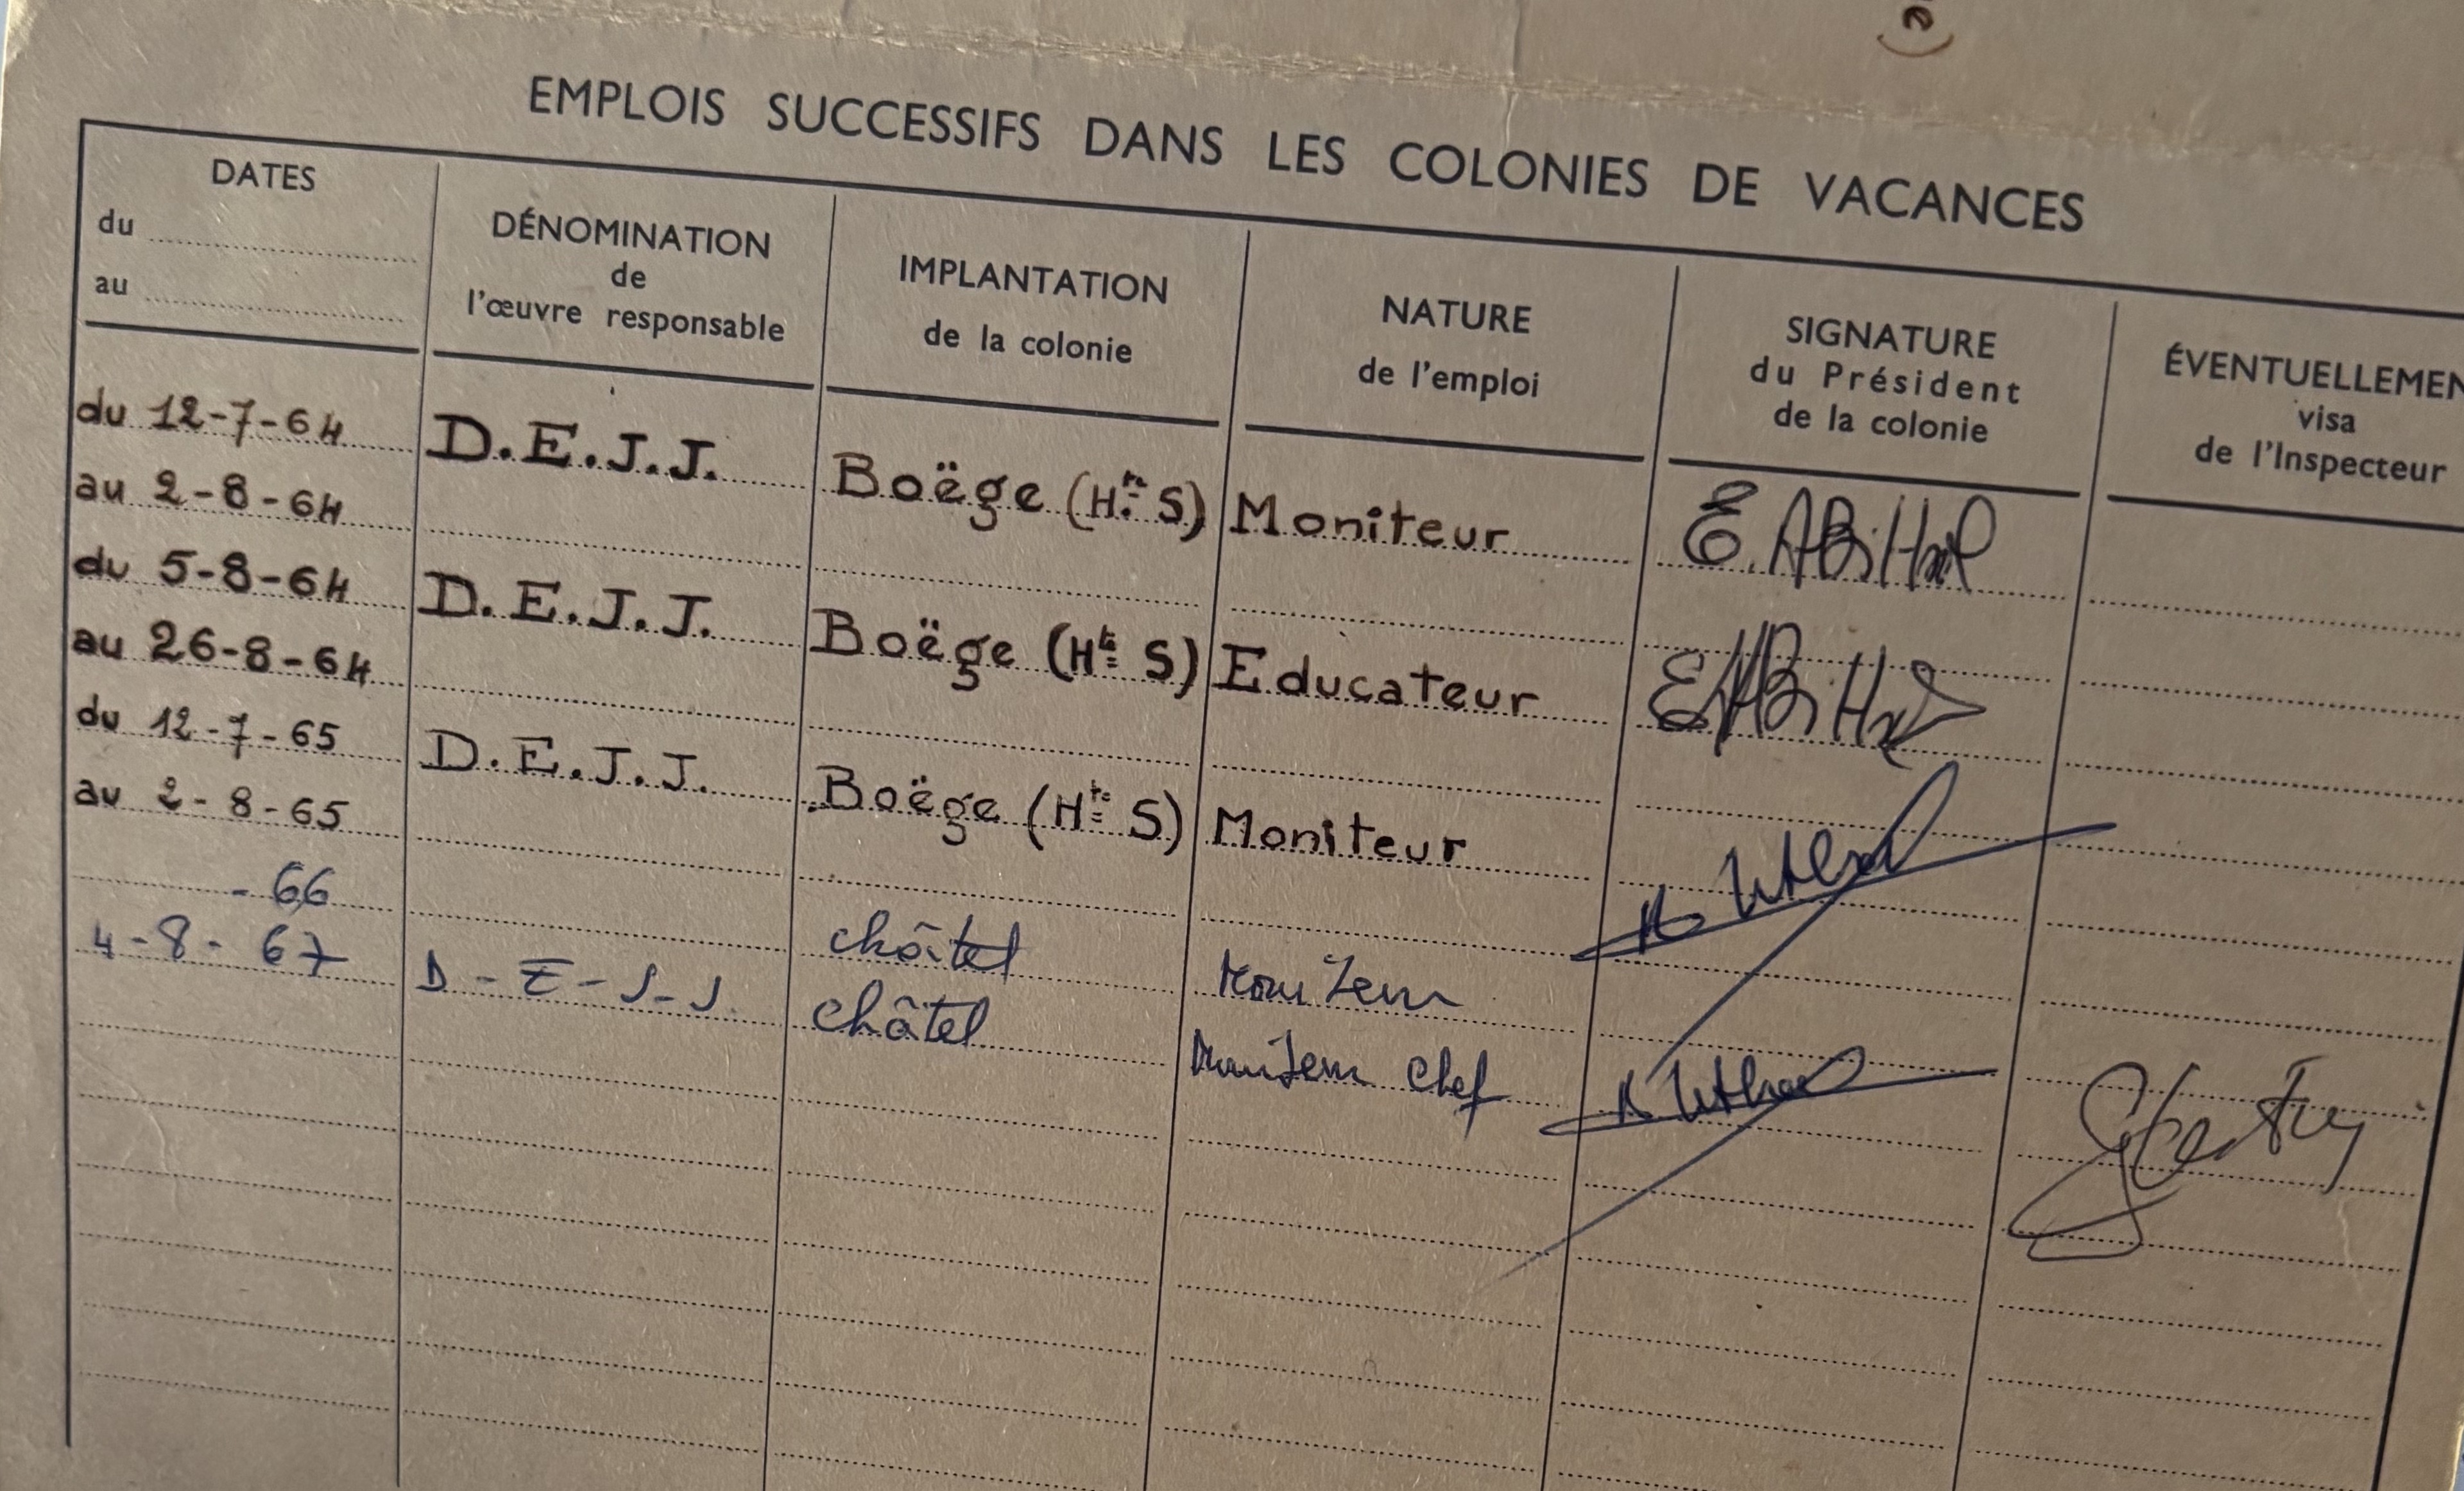 EMPLOIS SUCCESSIFS DANS LES COLONIES DE VACANCES
DATES
du
au
DÉNOMINATION
de
l'œuvre responsable
IMPLANTATION
de la colonie
NATURE
de l'emploi
SIGNATURE
du Président
de la colonie
ÉVENTUELLEMEN
visa
de l'Inspecteur
du 12-7-64 D.E.J.J. Boëge (Hte S) Moniteur
au 2-8-64
du 5-8-64 D.E.J.J. Boëge (Hte S) Educateur
au 26-8-64
du 12-7-65 D.E.J.J. Boëge (Hte S) Moniteur
au 2-8-65
- 66 châtel Moniteur
4-8-67 D-E-J-J châtel Moniteur chef